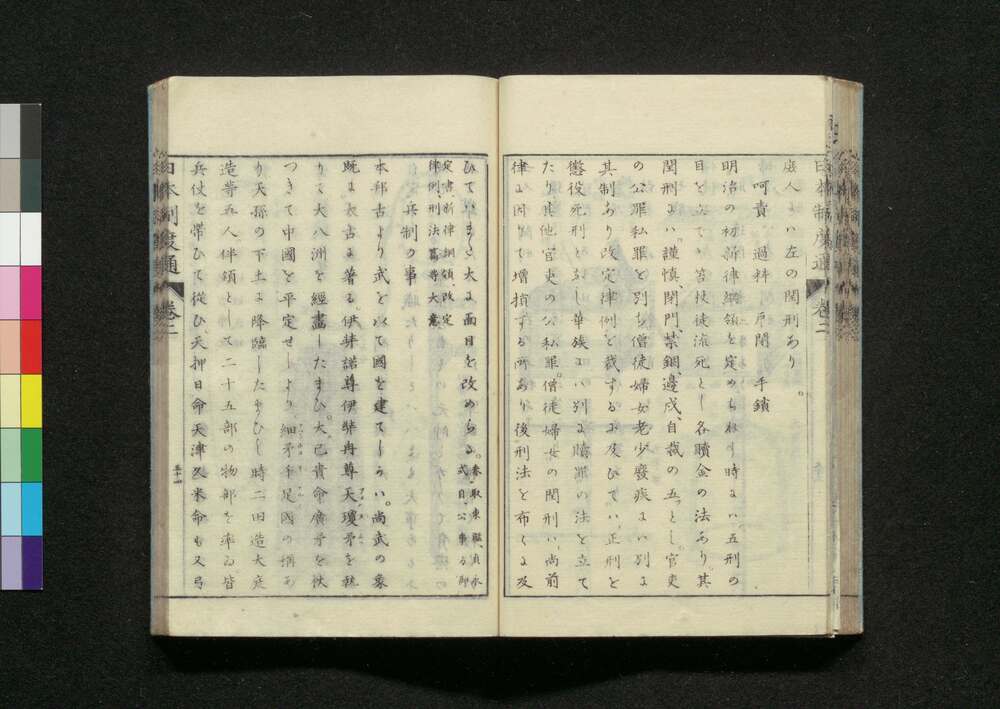 庶人には左の閏刑あり
呵責 過料 戸閉 手鎖
明治の初新律綱領を定められし時は五刑の
目を立て笞杖徒流死とし各贖金の法あり其
閏刑には謹慎、閉門、禁錮、邊戍、自裁の五とし官吏
の公罪私罪を別ち僧徒婦女老少癈疾には別に
其制あり改定律例を裁するに及びては正刑を
懲役死刑とし華族には別に贖罪の法を立て
たり其他官吏の公私罪僧徒婦女の閏刑は尚前
律に因りて増損する所あり後刑法を布くに及
びてはまた大に面目を改めらる
式目、公事方御
定書、新律綱領、改定
律例刑法等大意
兵制の事
本邦古より武を以て國を建てしらい尚武の象
既に太古に著る、伊弉諾尊伊弉冉尊天瓊矛を執
りて大八洲を經畫したまひ大己貴命廣矛を杖
つきて中國を平定せしより細矛千足國の稱あ
り天孫の下土に降臨したまひし時二田造大庭
造等五人伴領として二十五部の物部を率ゐ皆
兵仗を帶ひて從ひ、天押日命天津久米命も又弓
日本制度通 卷二
五十一
日本制度通 卷二